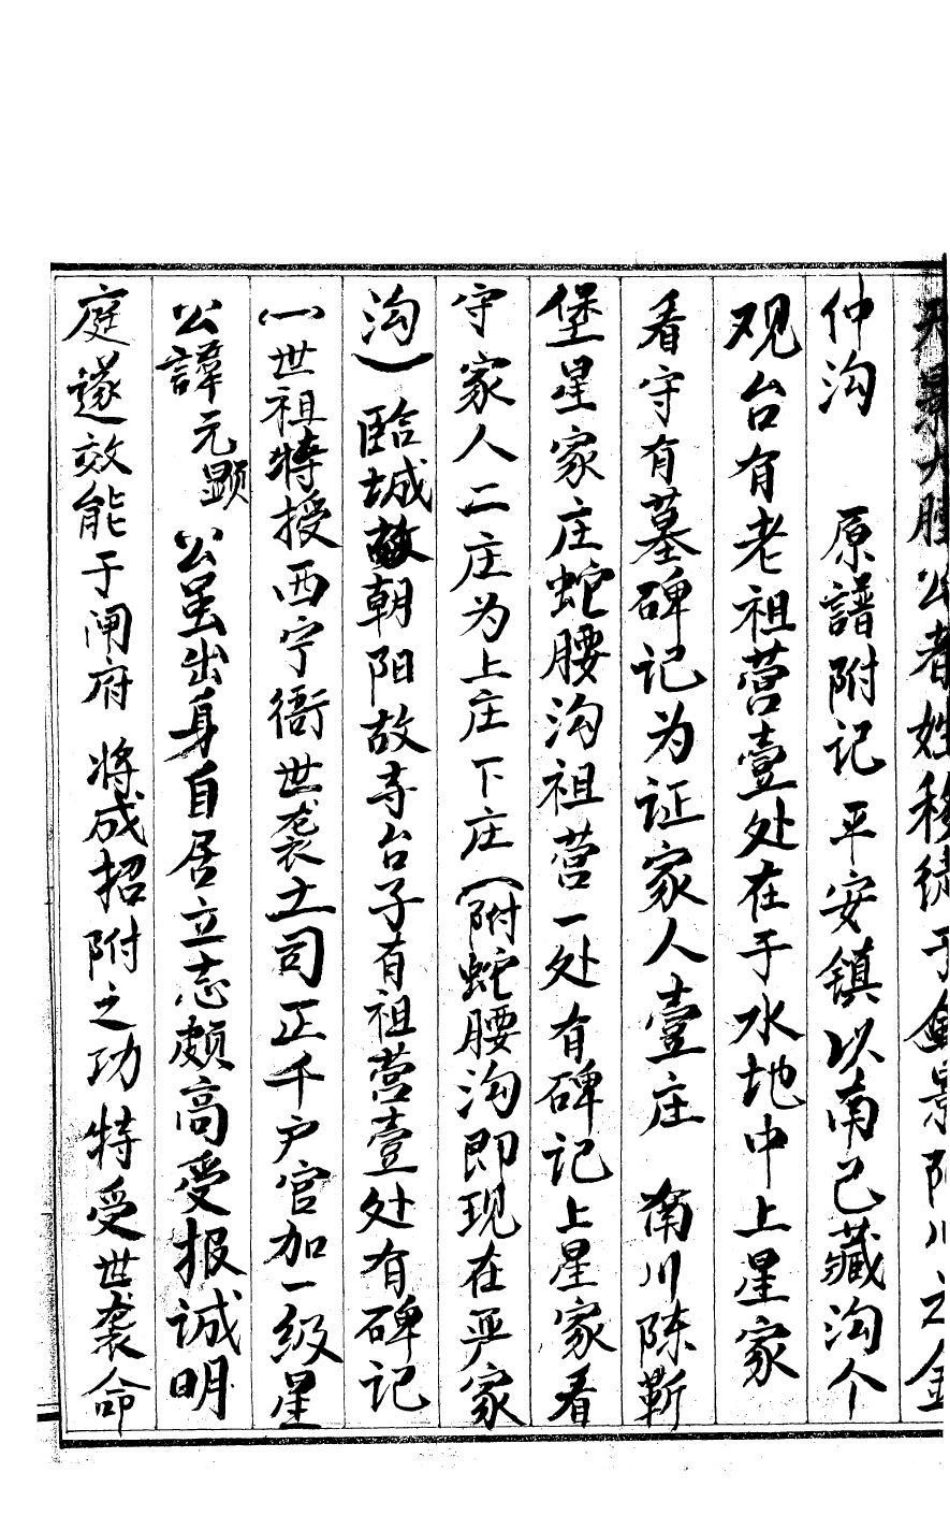 大胜公者姓移徙于
仲沟 原譜附记 平安镇以南己藏沟个
观台有老祖营壹处在于水地中上星家
看守有墓碑记为证家人壹庄 南川陈靳
堡星家庄蛇腰沟祖营一处有碑记上星家看
守家人二庄为上庄下庄(附蛇腰沟即现在严家
沟)臨城故朝阳故寺台子有祖营壹处有碑记
一世祖特授西宁衙世袭土司正千户官加一级星
公諱元顕 公虽出身自居立志颇高受报诚明
庭遂效能于闸府 将成招附之功特受世袭命